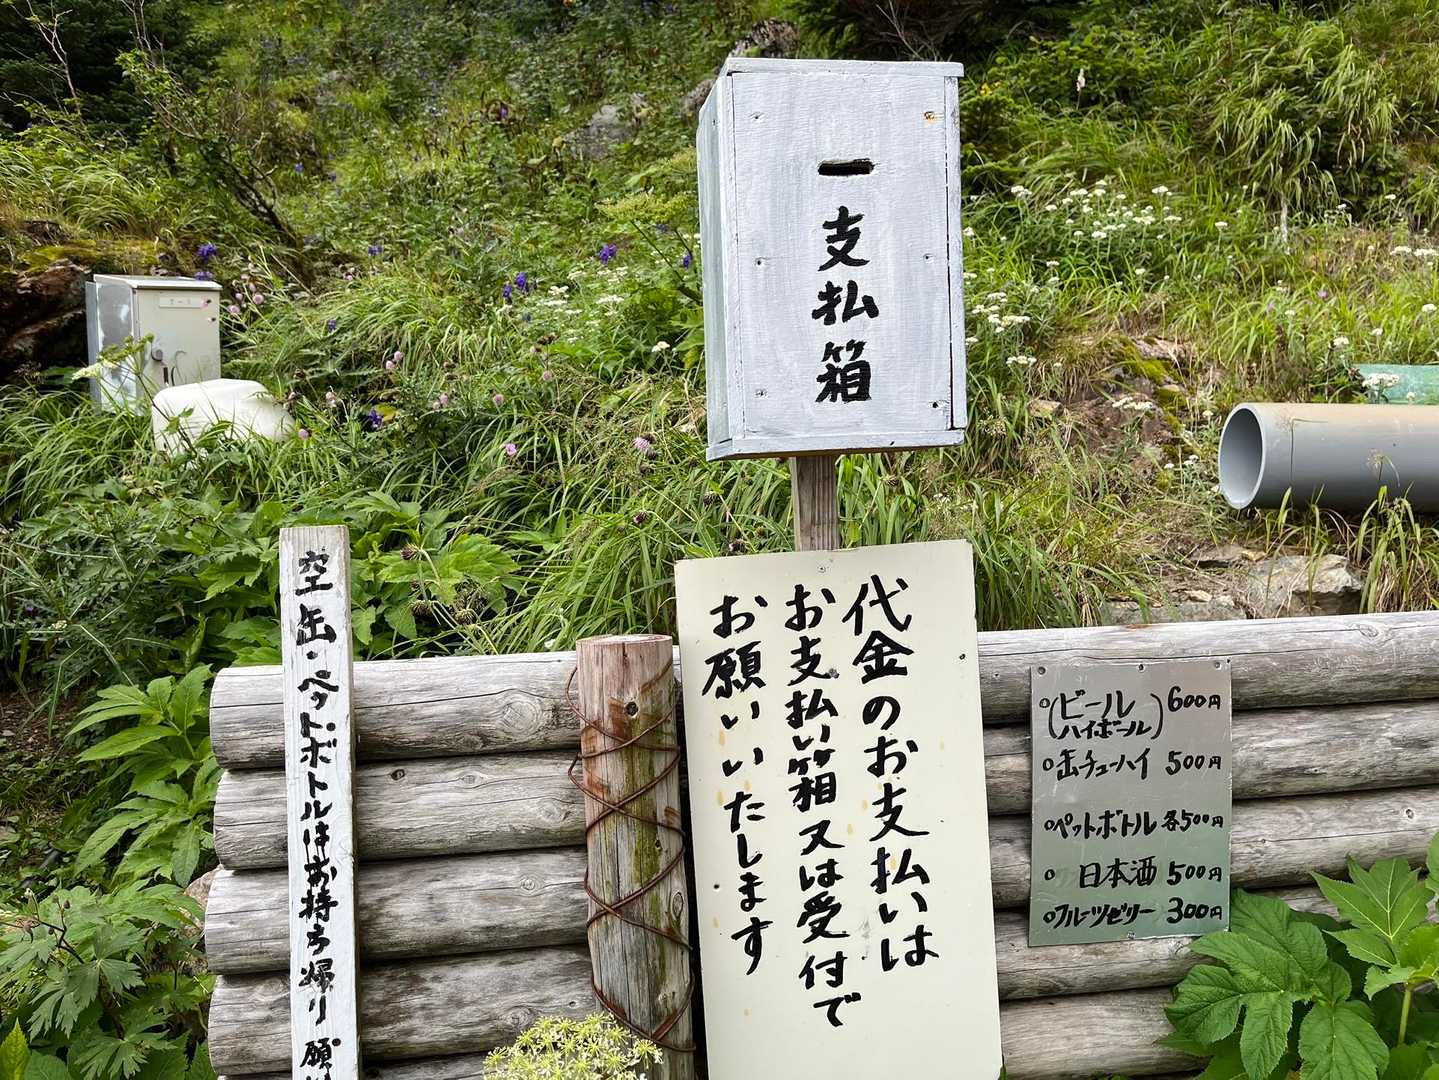 支払箱
代金のお支払いは
お支払い箱又は受付で
お願いいたします
空缶・ペットボトルはお持ち帰り願い
(ビール ハイボール) 600円
缶チューハイ 500円
ペットボトル 各500円
日本酒 500円
フルーツゼリー 300円